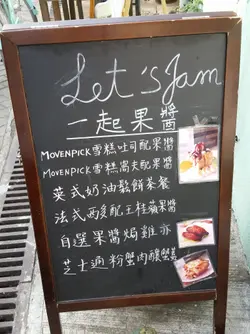 Let's Jam
一起果醬
MOVENPICK雪糕吐司配果醬
MOVENPICK雪糕窩夫配果醬
英式奶油鬆餅茶餐
法式西多配玉桂蘋果醬
自選果醬焗雞亦
芝士通粉蟹肉釀蟹蓋